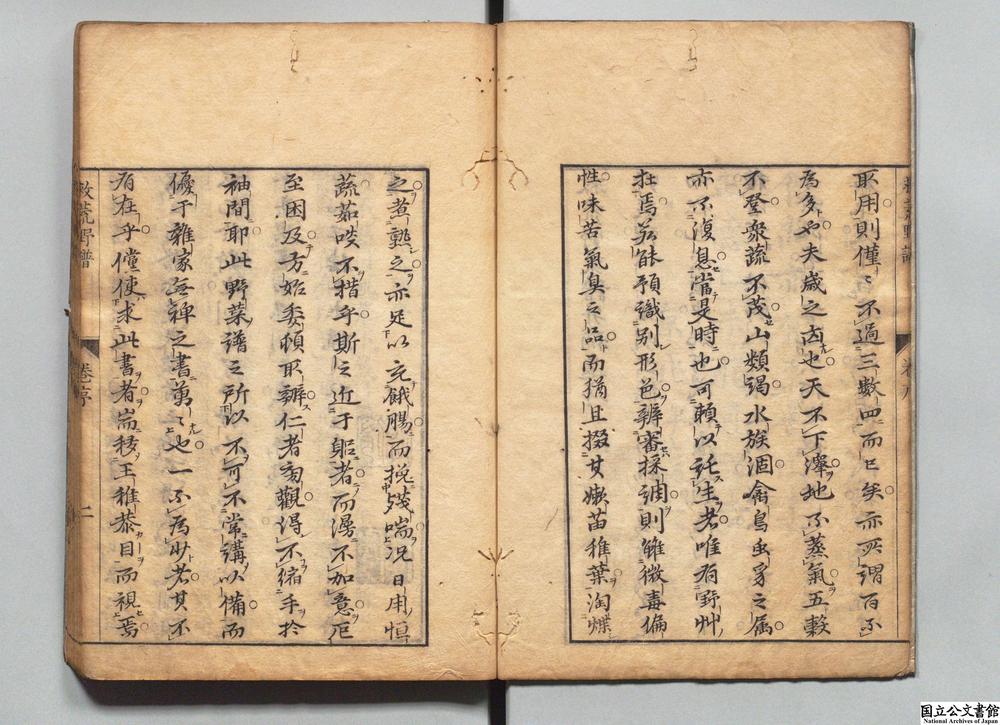 取用則僅〻不過三數四而已矣亦所謂百不
為多也夫歲之凶也天不下澤地不蒸氣五穀
不登衆蔬不茂山類竭水族涸禽鳥虫豸之属
亦不復息當是時也可賴以託生者唯有野艸
在焉若能預識別形色辨審採調則雖微毒偏
性味苦氣臭之品而猶且掇其嫩苗稚葉淘煠
之煮熟之亦足以充餓腸而挽殘喘况日用恒
蔬茹啖不措乎斯之近于軀者而漫不加意厄
至困及方始委頓耶辨仁者舀觀得不縮手於
袖間耶此野菜譜之所以不可不常講以備而
優于雜家無裨之書萬〻也一不為少者其不
有在乎儻使求此書者耑移王稚恭目而視焉
救荒野譜
卷序
二
国立公文書館
National Archives of Japan